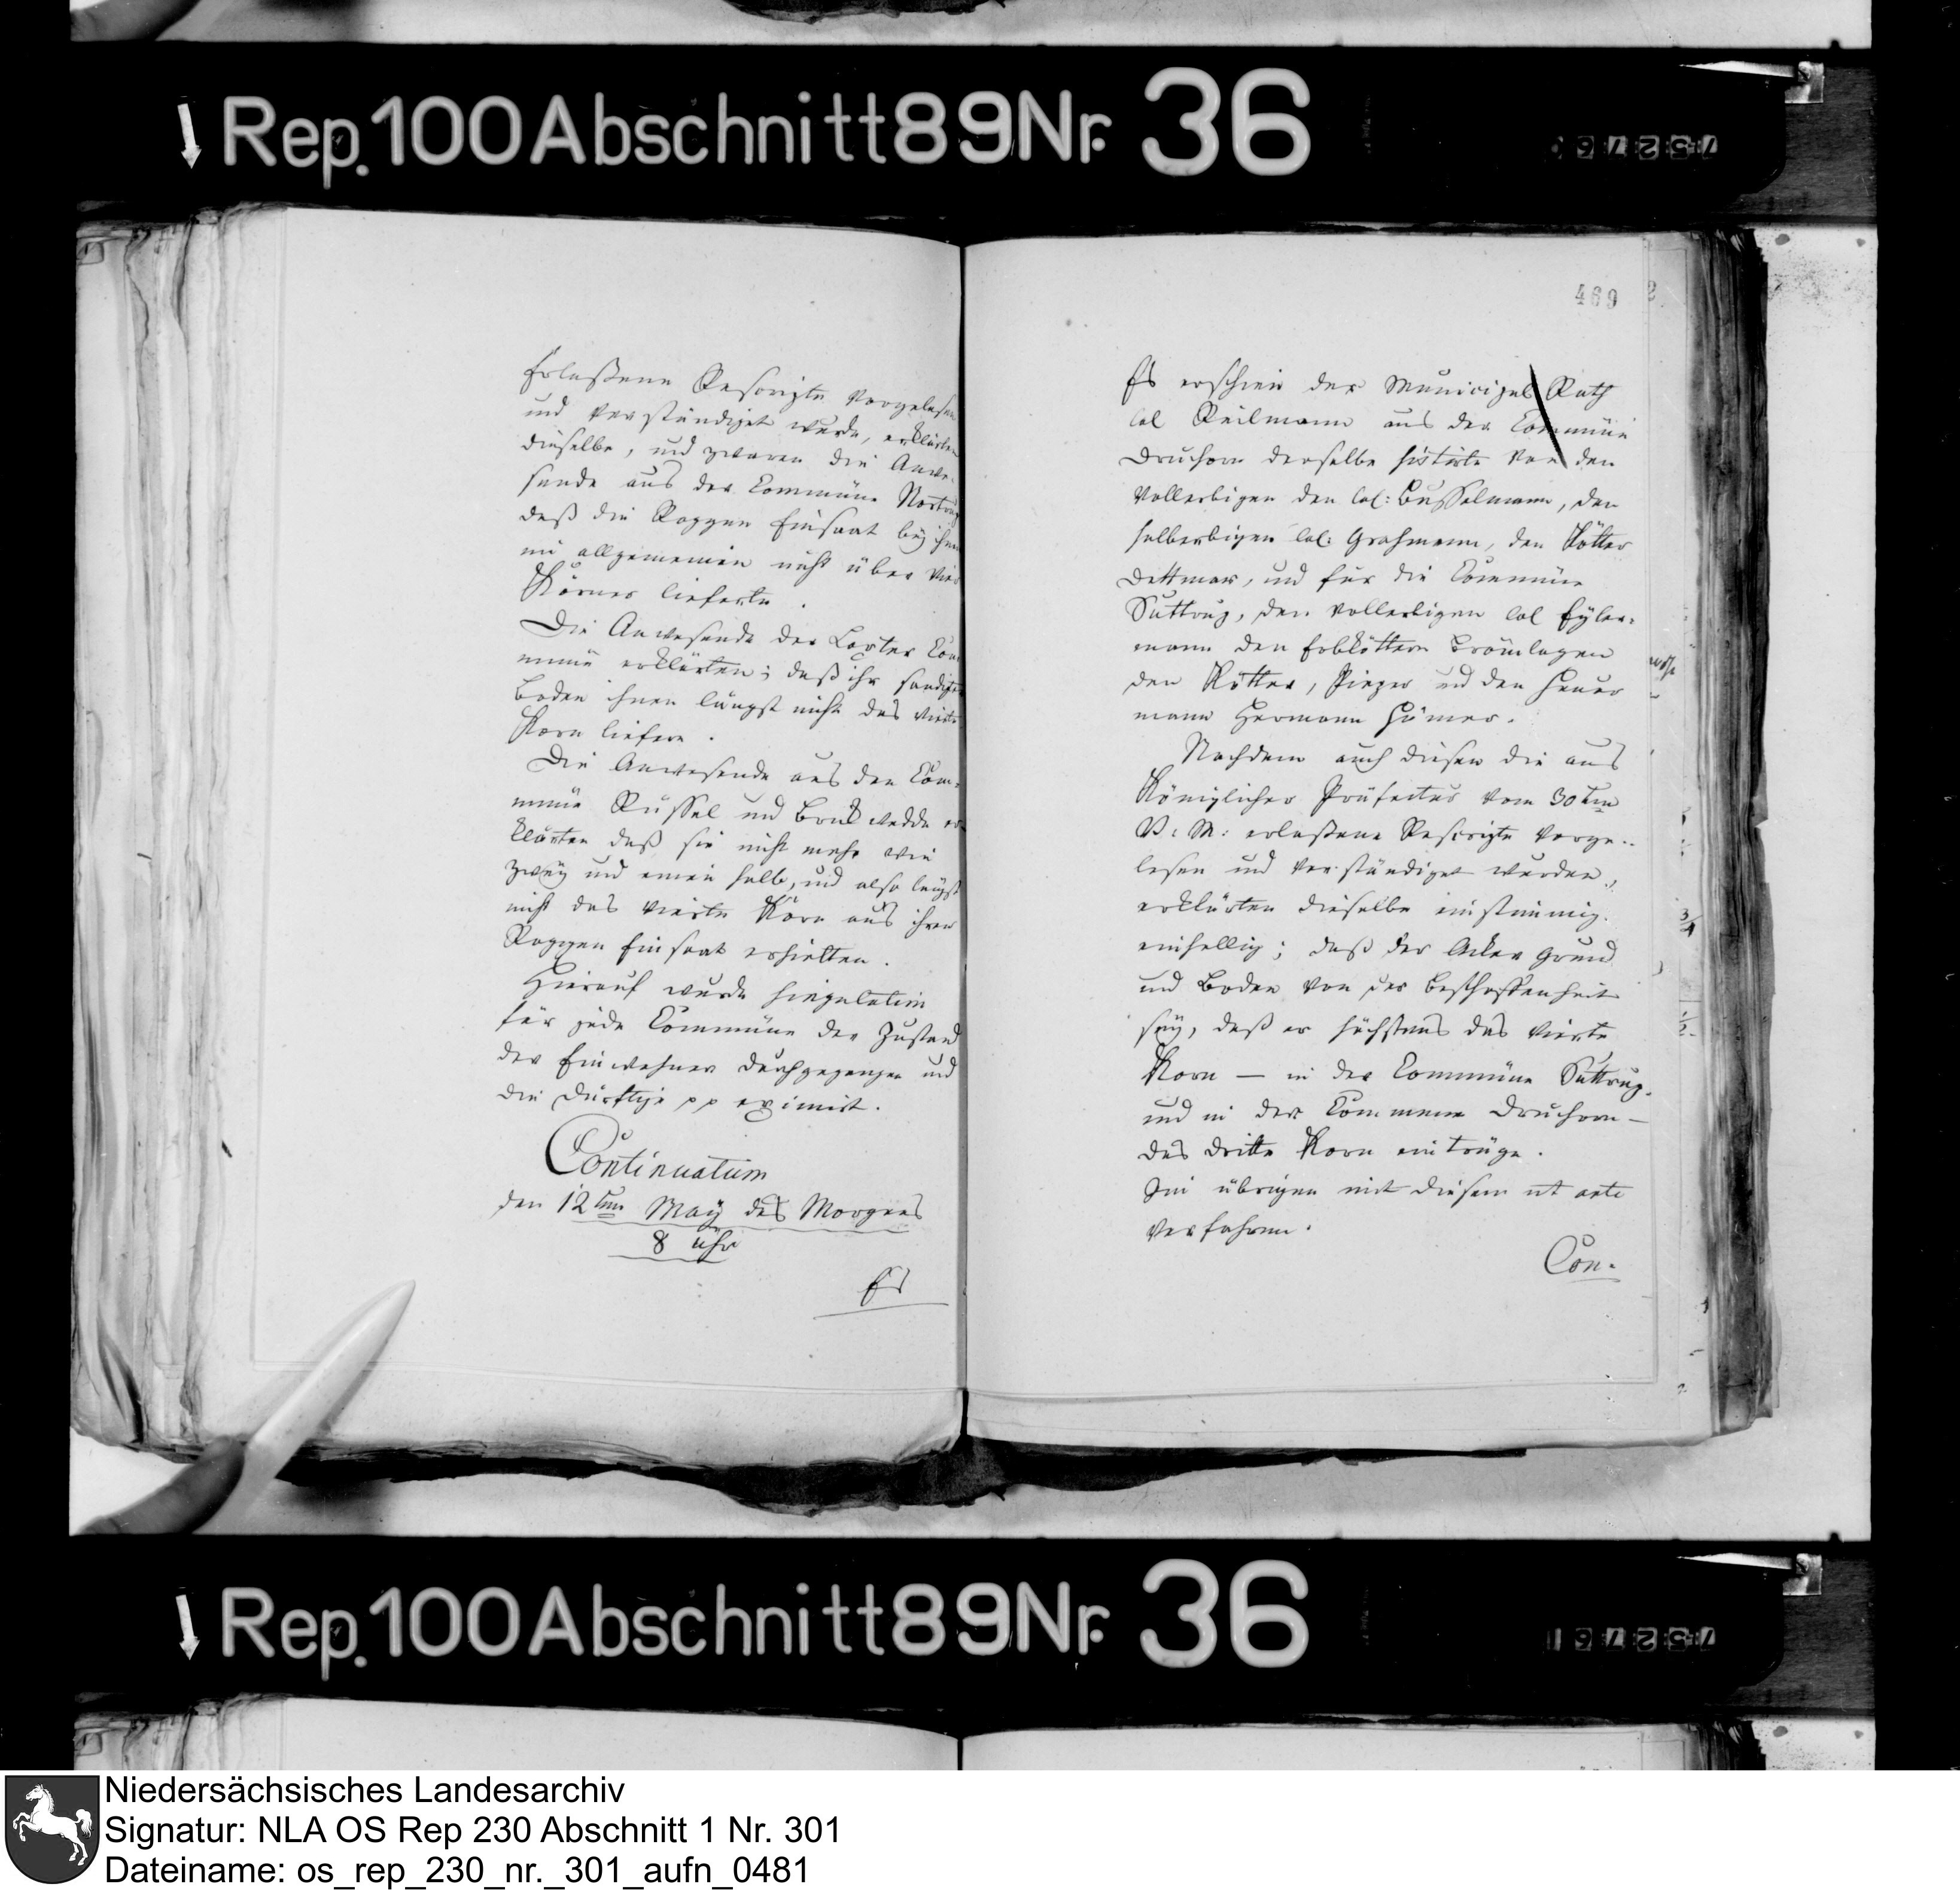 Rep. 100 Abschnitt 89 Nr. 36
erlaßene Rescripte vorgelesen
und verständiget wurde, erklärten
dieselbe, und zwaren die Anwe-
sende aus der Commüne Nortrup
daß die Roggen Einsaat beÿ ihnen
im allgemeinen nicht über vier
Körner lieferte.
Die Anwesende der Loxter Com
müne erklärten; daß ihr sandigter
Boden ihnen längst nicht das vierte
Korn liefere.
Die Anwesende aus den Com-
müne Rüssel und Brukwedde er-
klärten daß sie nicht mehr wie
zweÿ und einen halb, und also längst
nicht das vierte Korn aus ihrer
Roggen Einsaat erhielten.
Hierauf wurde singulatim
für jede Commüne der Zustand
der Einwohner durchgegangen und
die dürftige pp eximirt.
Continuatum
den 12ten Maÿ des Morgens
8 Uhr
Es
469
Es erschien der Municipal Rath
Col Reilmann aus der Commüne
Druchorn derselbe sistirte von den
Vollerbigen den Col: Busselmann, den
halberbigen Col: Grasmann, den Kötter
Dettmer, und für die Commüne
Suttrup, den vollerbigen Col Eyler-
mann den Erbköttern Brömlagen
den Kötter, Pieper und den Heuer
mann Hermann Hümer.
Nachdem auch diesen die aus
Königlicher Präfectur vom 30ten
V: M: erlaßene Rescripte vorge-
lesen und verständiget wurden,
erklärten dieselbe einstimmig
einhellig; daß der Acker Grund
und Boden von der Beschaffenheit
seÿ, daß er höchstens das vierte
Korn — in der Commüne Suttrup,
und in der Commune Druchorn —
das dritte Korn eintrüge.
Im übrigen mit diesem ut ante
verfahren.
Con-
Rep. 100 Abschnitt 89 Nr. 36
Niedersächsisches Landesarchiv
Signatur: NLA OS Rep 230 Abschnitt 1 Nr. 301
Dateiname: os_rep_230_nr._301_aufn_0481